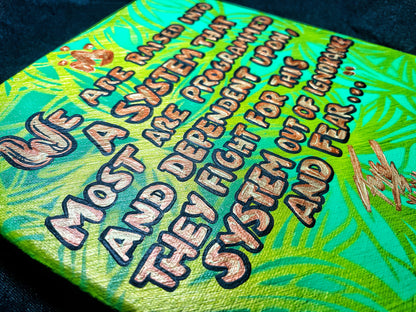 "We are raised into
a system that
most are programmed
and dependent upon,
they fight for this
system out of ignorance
and fear..."